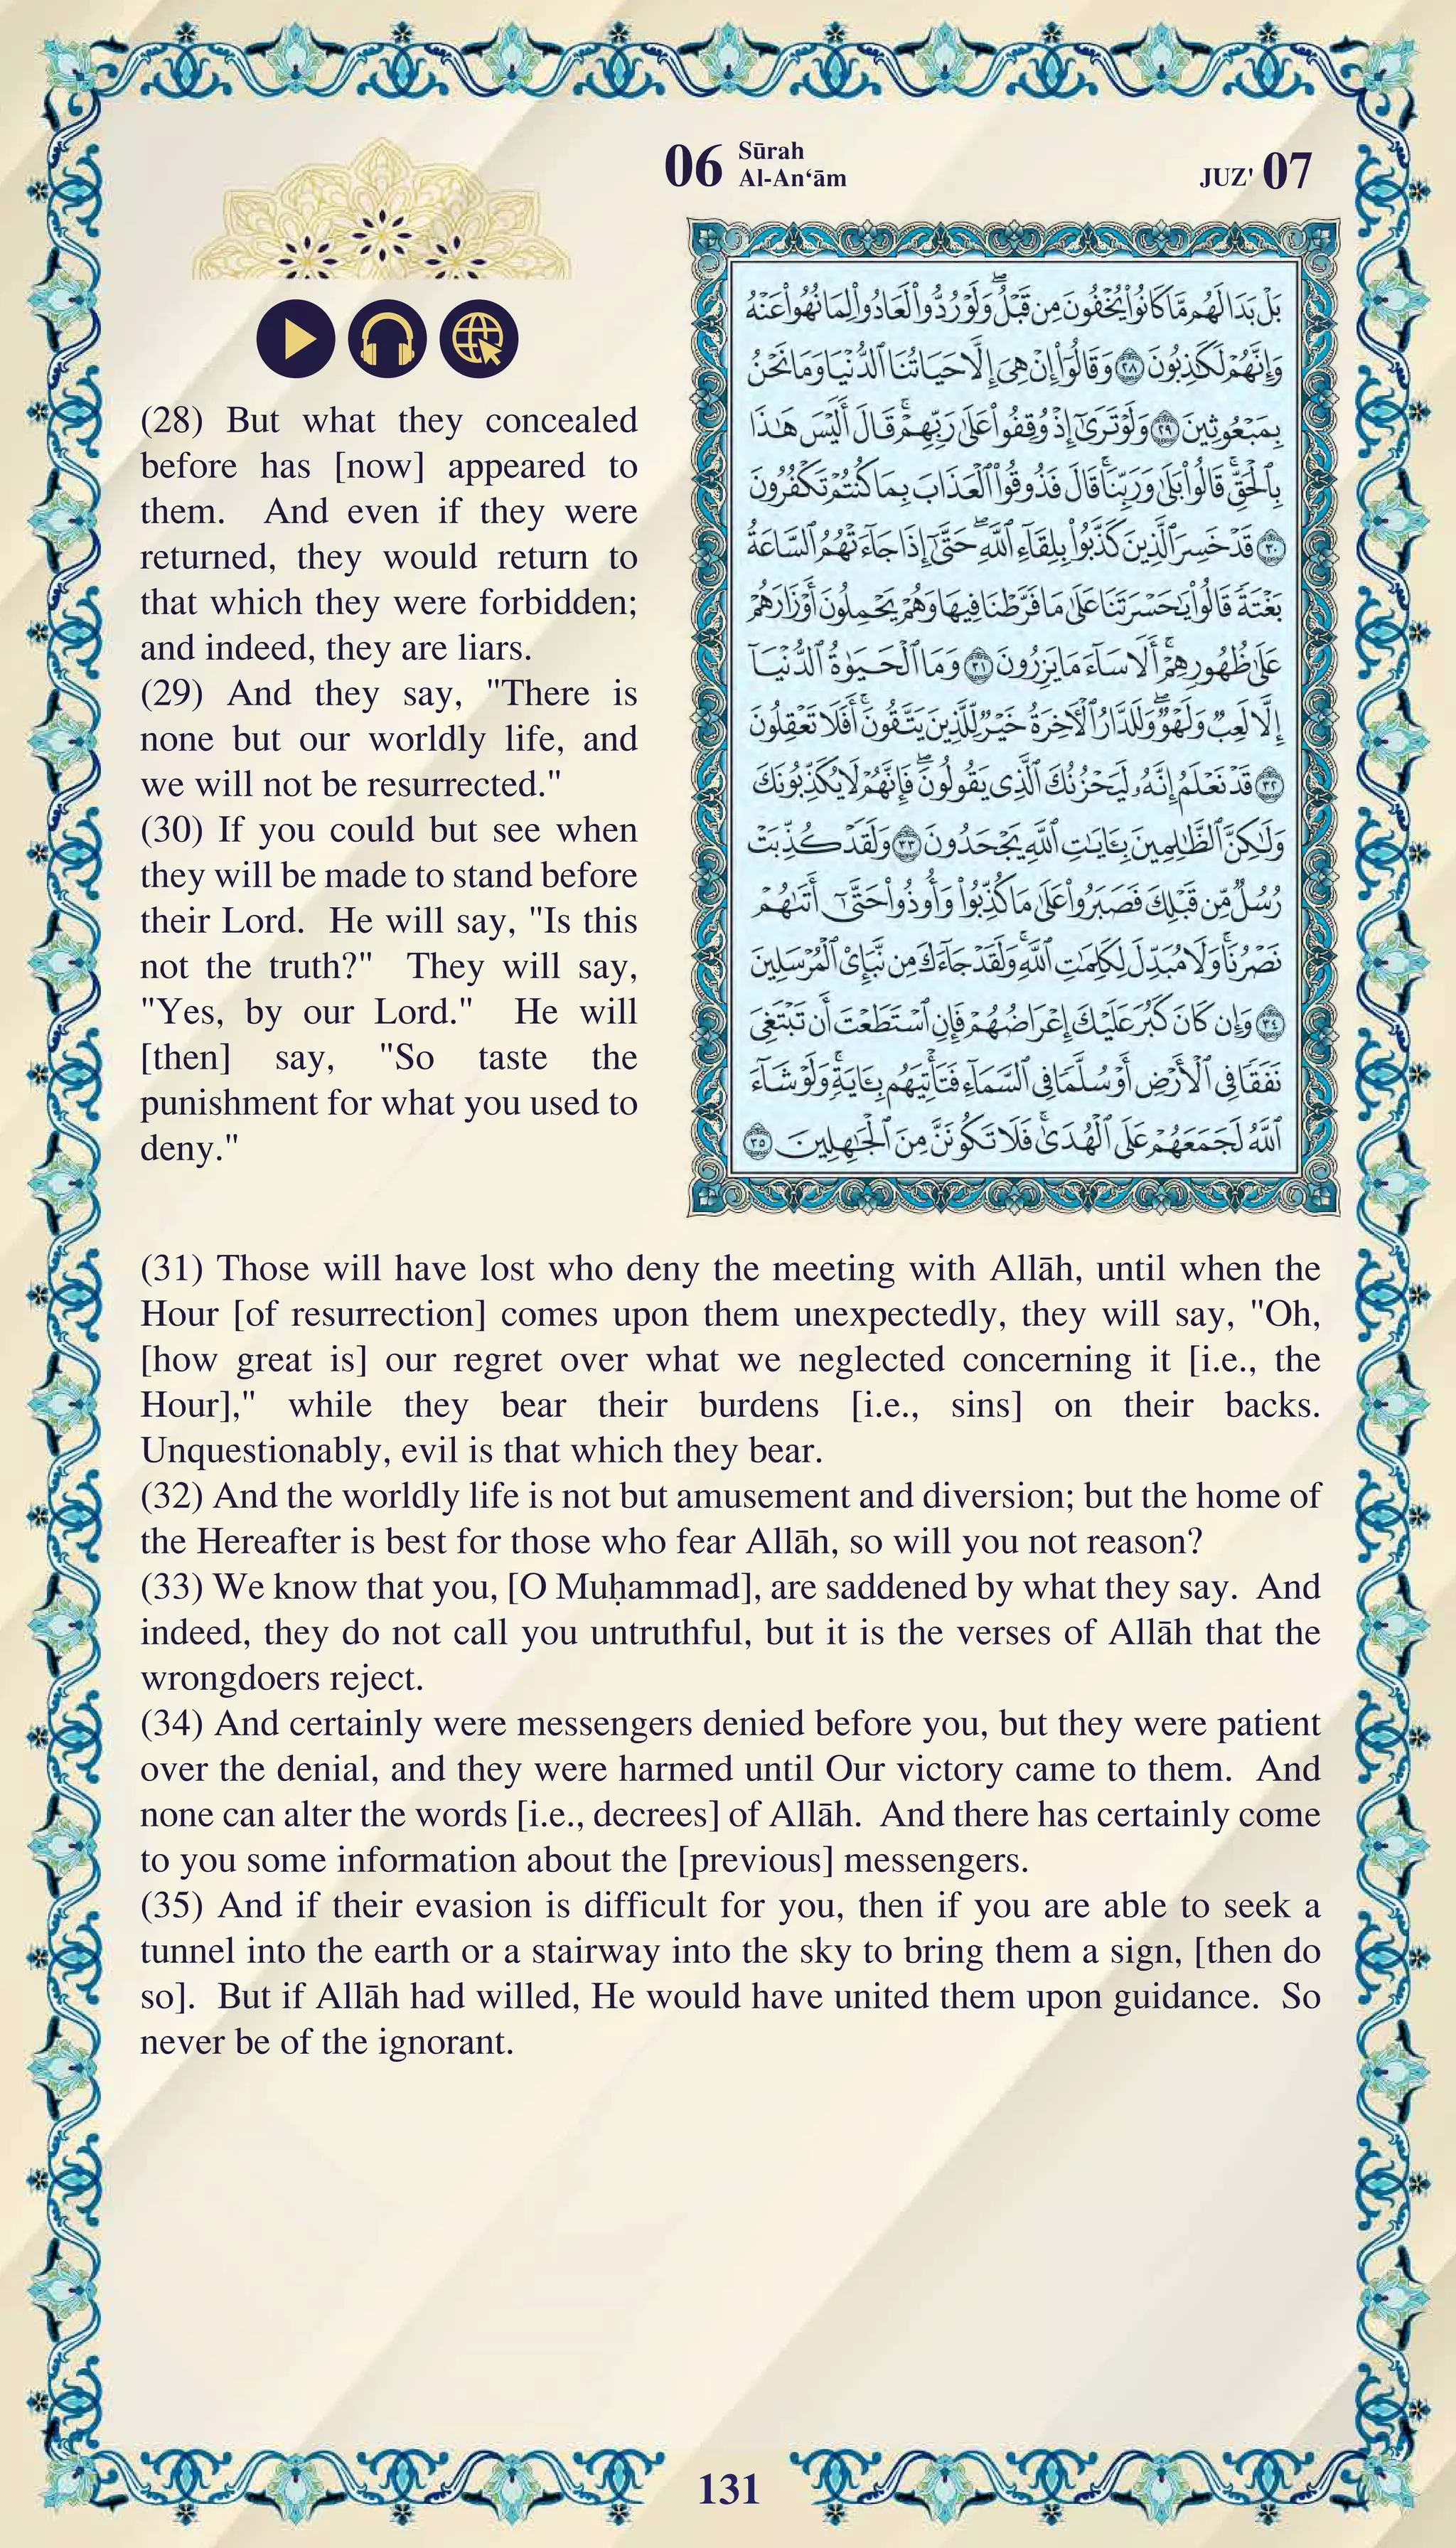 06 Sūrah
Al-An‘ām
JUZ' 07
بَلْ بَدَا لَهُم مَّا كَانُوا۟ يُخْفُونَ مِن قَبْلُ ۖ وَلَوْ رُدُّوا۟ لَعَادُوا۟ لِمَا نُهُوا۟ عَنْهُ
وَإِنَّهُمْ لَكَـٰذِبُونَ ٢٨ وَقَالُوٓا۟ إِنْ هِىَ إِلَّا حَيَاتُنَا ٱلدُّنْيَا وَمَا نَحْنُ
بِمَبْعُوثِينَ ٢٩ وَلَوْ تَرَىٰٓ إِذْ وُقِفُوا۟ عَلَىٰ رَبِّهِمْ ۚ قَالَ أَلَيْسَ هَـٰذَا
بِٱلْحَقِّ ۚ قَالُوا۟ بَلَىٰ وَرَبِّنَا ۚ قَالَ فَذُوقُوا۟ ٱلْعَذَابَ بِمَا كُنتُمْ تَكْفُرُونَ
٣٠ قَدْ خَسِرَ ٱلَّذِينَ كَذَّبُوا۟ بِلِقَآءِ ٱللَّهِ ۖ حَتَّىٰٓ إِذَا جَآءَتْهُمُ ٱلسَّاعَةُ
بَغْتَةً قَالُوا۟ يَـٰحَسْرَتَنَا عَلَىٰ مَا فَرَّطْنَا فِيهَا وَهُمْ يَحْمِلُونَ أَوْزَارَهُمْ
عَلَىٰ ظُهُورِهِمْ ۚ أَلَا سَآءَ مَا يَزِرُونَ ٣١ وَمَا ٱلْحَيَوٰةُ ٱلدُّنْيَآ
إِلَّا لَعِبٌ وَلَهْوٌ ۖ وَلَلدَّارُ ٱلْـَٔاخِرَةُ خَيْرٌ لِّلَّذِينَ يَتَّقُونَ ۗ أَفَلَا تَعْقِلُونَ
٣٢ قَدْ نَعْلَمُ إِنَّهُۥ لَيَحْزُنُكَ ٱلَّذِى يَقُولُونَ ۖ فَإِنَّهُمْ لَا يُكَذِّبُونَكَ
وَلَـٰكِنَّ ٱلظَّـٰلِمِينَ بِـَٔايَـٰتِ ٱللَّهِ يَجْحَدُونَ ٣٣ وَلَقَدْ كُذِّبَتْ
رُسُلٌ مِّن قَبْلِكَ فَصَبَرُوا۟ عَلَىٰ مَا كُذِّبُوا۟ وَأُوذُوا۟ حَتَّىٰٓ أَتَىٰهُمْ
نَصْرُنَا ۚ وَلَا مُبَدِّلَ لِكَلِمَـٰتِ ٱللَّهِ ۚ وَلَقَدْ جَآءَكَ مِن نَّبَإِى۟ ٱلْمُرْسَلِينَ
٣٤ وَإِن كَانَ كَبُرَ عَلَيْكَ إِعْرَاضُهُمْ فَإِنِ ٱسْتَطَعْتَ أَن تَبْتَغِىَ
نَفَقًا فِى ٱلْأَرْضِ أَوْ سُلَّمًا فِى ٱلسَّمَآءِ فَتَأْتِيَهُم بِـَٔايَةٍ ۚ وَلَوْ شَآءَ
ٱللَّهُ لَجَمَعَهُمْ عَلَى ٱلْهُدَىٰ ۚ فَلَا تَكُونَنَّ مِنَ ٱلْجَـٰهِلِينَ ٣٥
(28) But what they concealed
before has [now] appeared to
them. And even if they were
returned, they would return to
that which they were forbidden;
and indeed, they are liars.
(29) And they say, "There is
none but our worldly life, and
we will not be resurrected."
(30) If you could but see when
they will be made to stand before
their Lord. He will say, "Is this
not the truth?" They will say,
"Yes, by our Lord." He will
[then] say, "So taste the
punishment for what you used to
deny."
(31) Those will have lost who deny the meeting with Allāh, until when the
Hour [of resurrection] comes upon them unexpectedly, they will say, "Oh,
[how great is] our regret over what we neglected concerning it [i.e., the
Hour]," while they bear their burdens [i.e., sins] on their backs.
Unquestionably, evil is that which they bear.
(32) And the worldly life is not but amusement and diversion; but the home of
the Hereafter is best for those who fear Allāh, so will you not reason?
(33) We know that you, [O Muḥammad], are saddened by what they say. And
indeed, they do not call you untruthful, but it is the verses of Allāh that the
wrongdoers reject.
(34) And certainly were messengers denied before you, but they were patient
over the denial, and they were harmed until Our victory came to them. And
none can alter the words [i.e., decrees] of Allāh. And there has certainly come
to you some information about the [previous] messengers.
(35) And if their evasion is difficult for you, then if you are able to seek a
tunnel into the earth or a stairway into the sky to bring them a sign, [then do
so]. But if Allāh had willed, He would have united them upon guidance. So
never be of the ignorant.
131